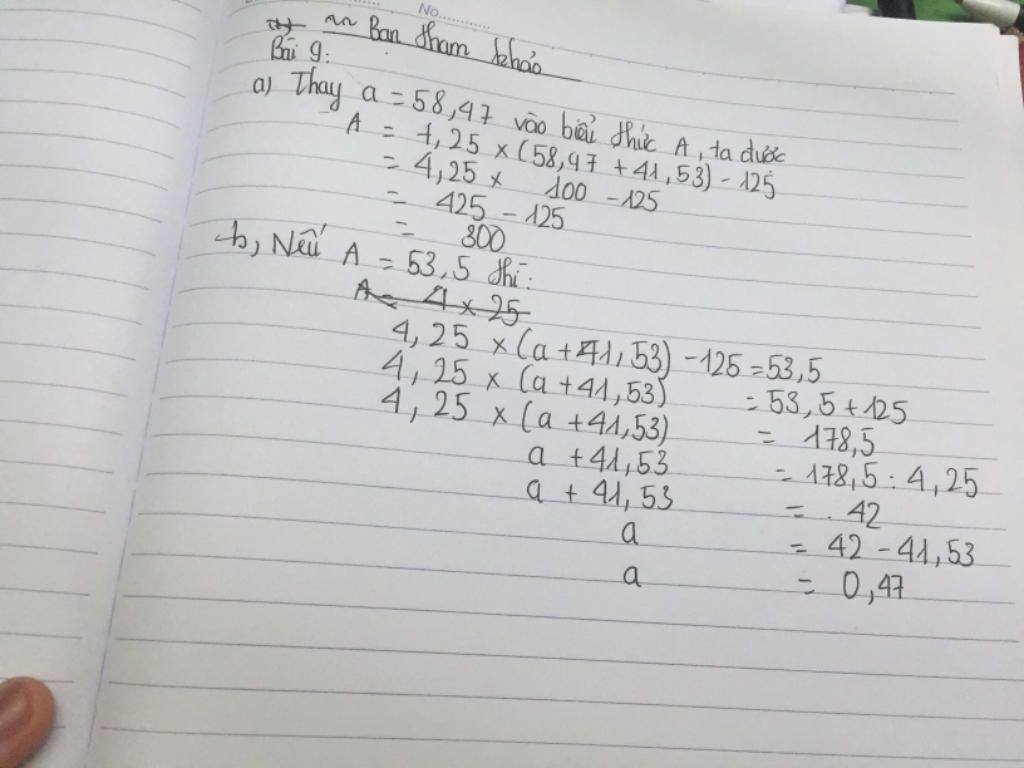 No..............
~~ Bạn tham khảo
Bài 9:
a) Thay a = 58,47 vào biểu thức A, ta được
A = 4,25 × (58,47 + 41,53) - 125
= 4,25 × 100 - 125
= 425 - 125
= 300
b, Nếu A = 53,5 thì:
A = 4 × 25
4,25 × (a + 41,53) - 125 = 53,5
4,25 × (a + 41,53) = 53,5 + 125
4,25 × (a + 41,53) = 178,5
a + 41,53 = 178,5 : 4,25
a + 41,53 = 42
a = 42 - 41,53
a = 0,47